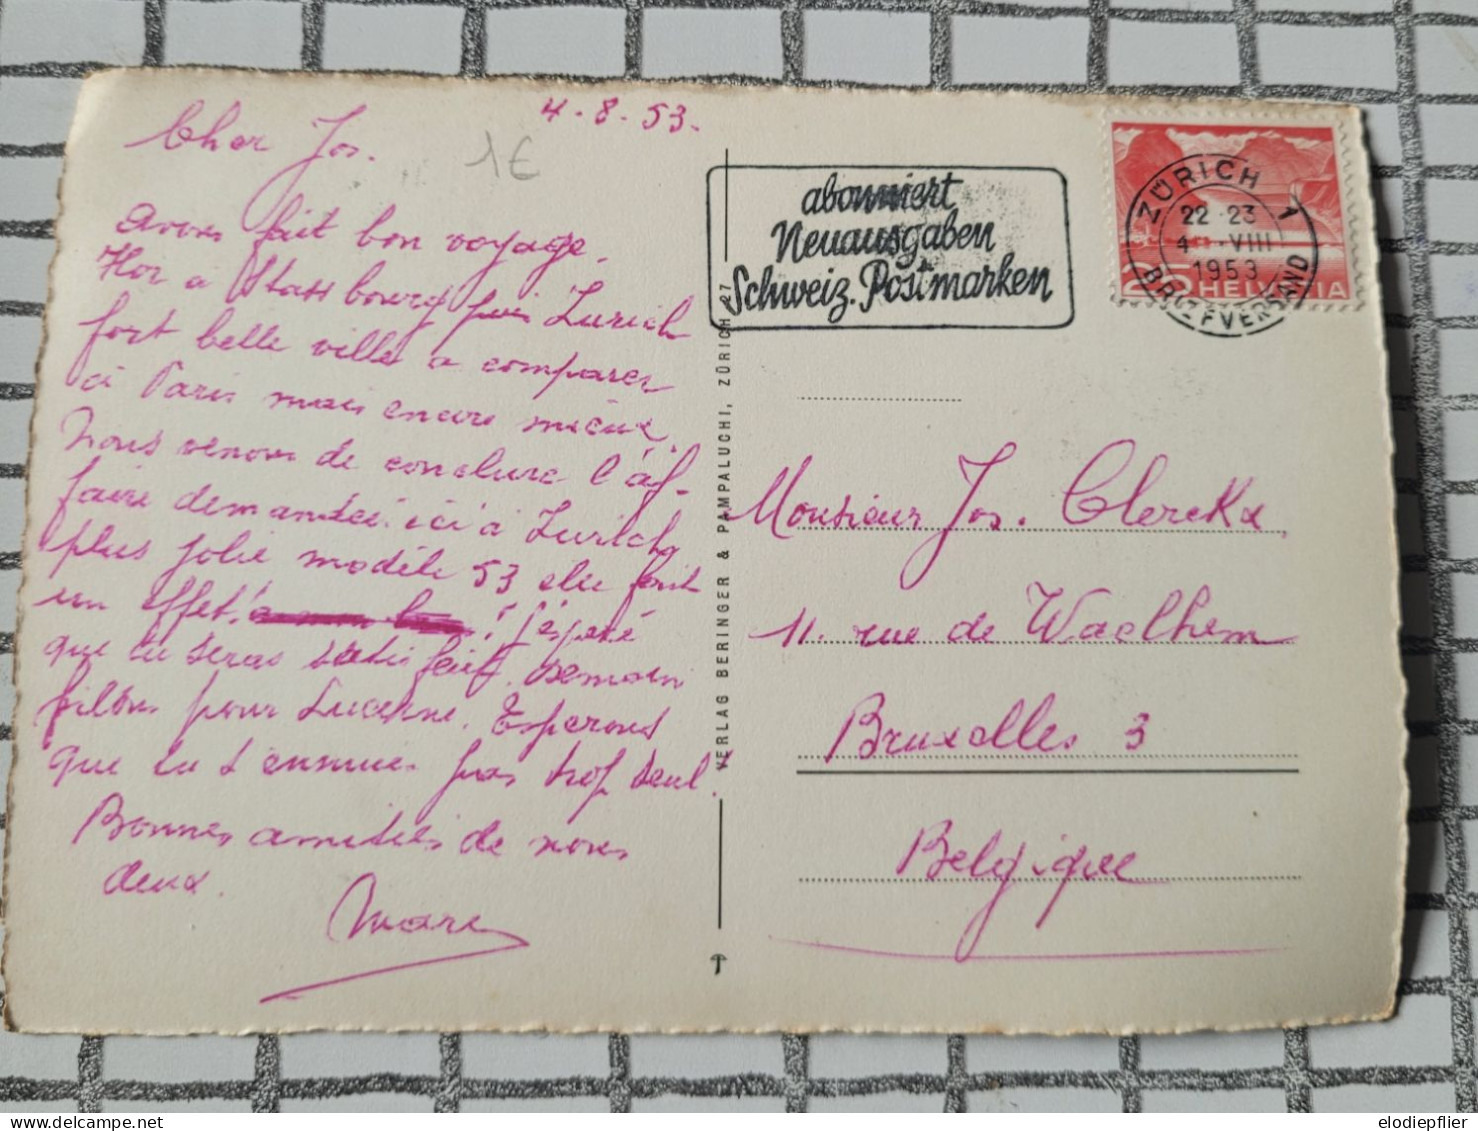 4.8.53.
Cher Jos.
1€
Avons fait bon voyage.
Hier a Stassbourg puis Zurich
fort belle ville a comparer
a Paris mais encore mieux.
Nous venons de conclure l'af-
faire demandée ici à Zurich,
plus jolie modèle 53 elle fait
un effet, ! j'espére
que tu seras satisfait. Demain
filons pour Lucerne. Esperons
que tu t'ennuies pas trop seul!
Bonnes amitiées de nous
deux.
Marc
VERLAG BERINGER & PAMPALUCHI, ZÜRICH 27
abonniert
Neuausgaben
Schweiz. Postmarken
ZÜRICH 1
22-23
4.-VIII
1953
BRIEFVERSAND
25 HELVETIA
Monsieur Jos. Clerckx
11. rue de Waelhem
Bruxelles 3
Belgique
elodiepflier